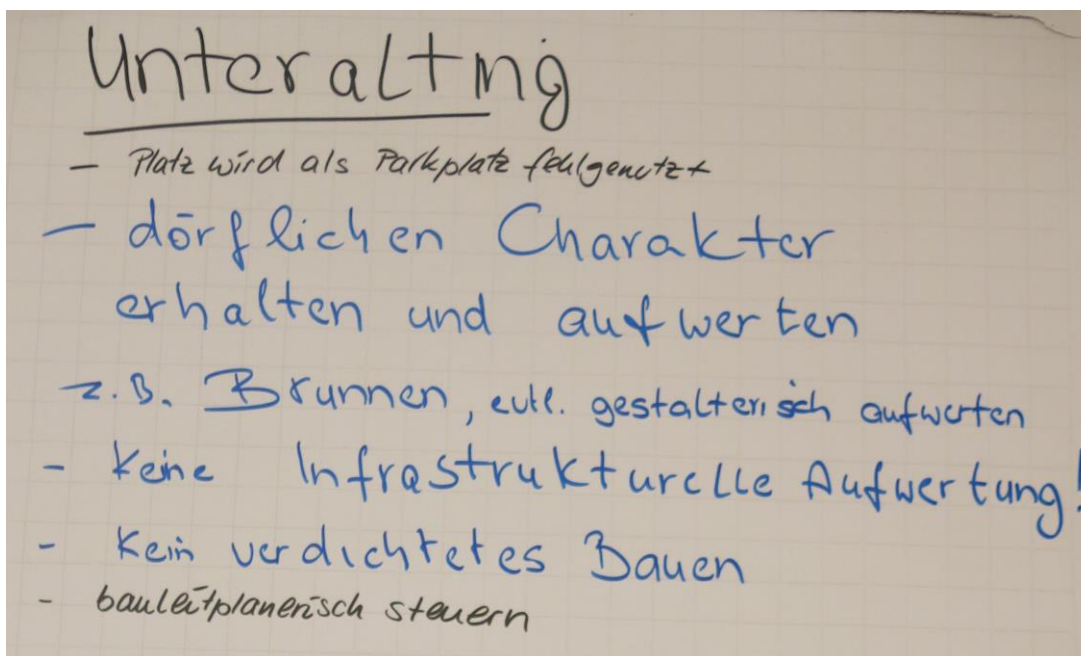 Unteralting
- Platz wird als Parkplatz fehlgenutzt
- dörflichen Charakter
erhalten und aufwerten
z.B. Brunnen, evtl. gestalterisch aufwerten
- Keine Infrastrukturelle Aufwertung!
- Kein verdichtetes Bauen
- bauleitplanerisch steuern